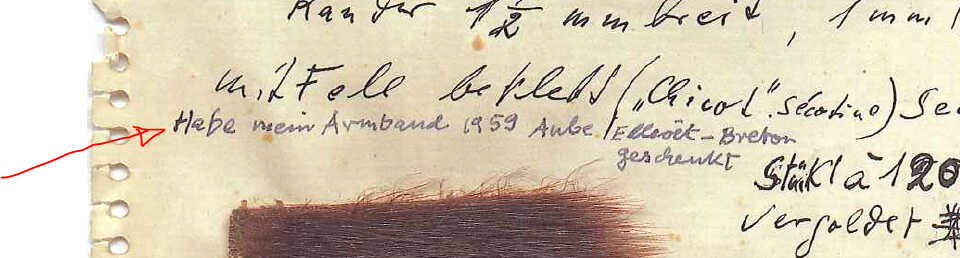 Ränder 1 1/2 mm breit, 1 mm
mit Fell beklebt ("Chicot" Sécotine) Se
Habe mein Armband 1959 Aube Elléouët-Breton
geschenkt
Stükl à 120
Vergoldet